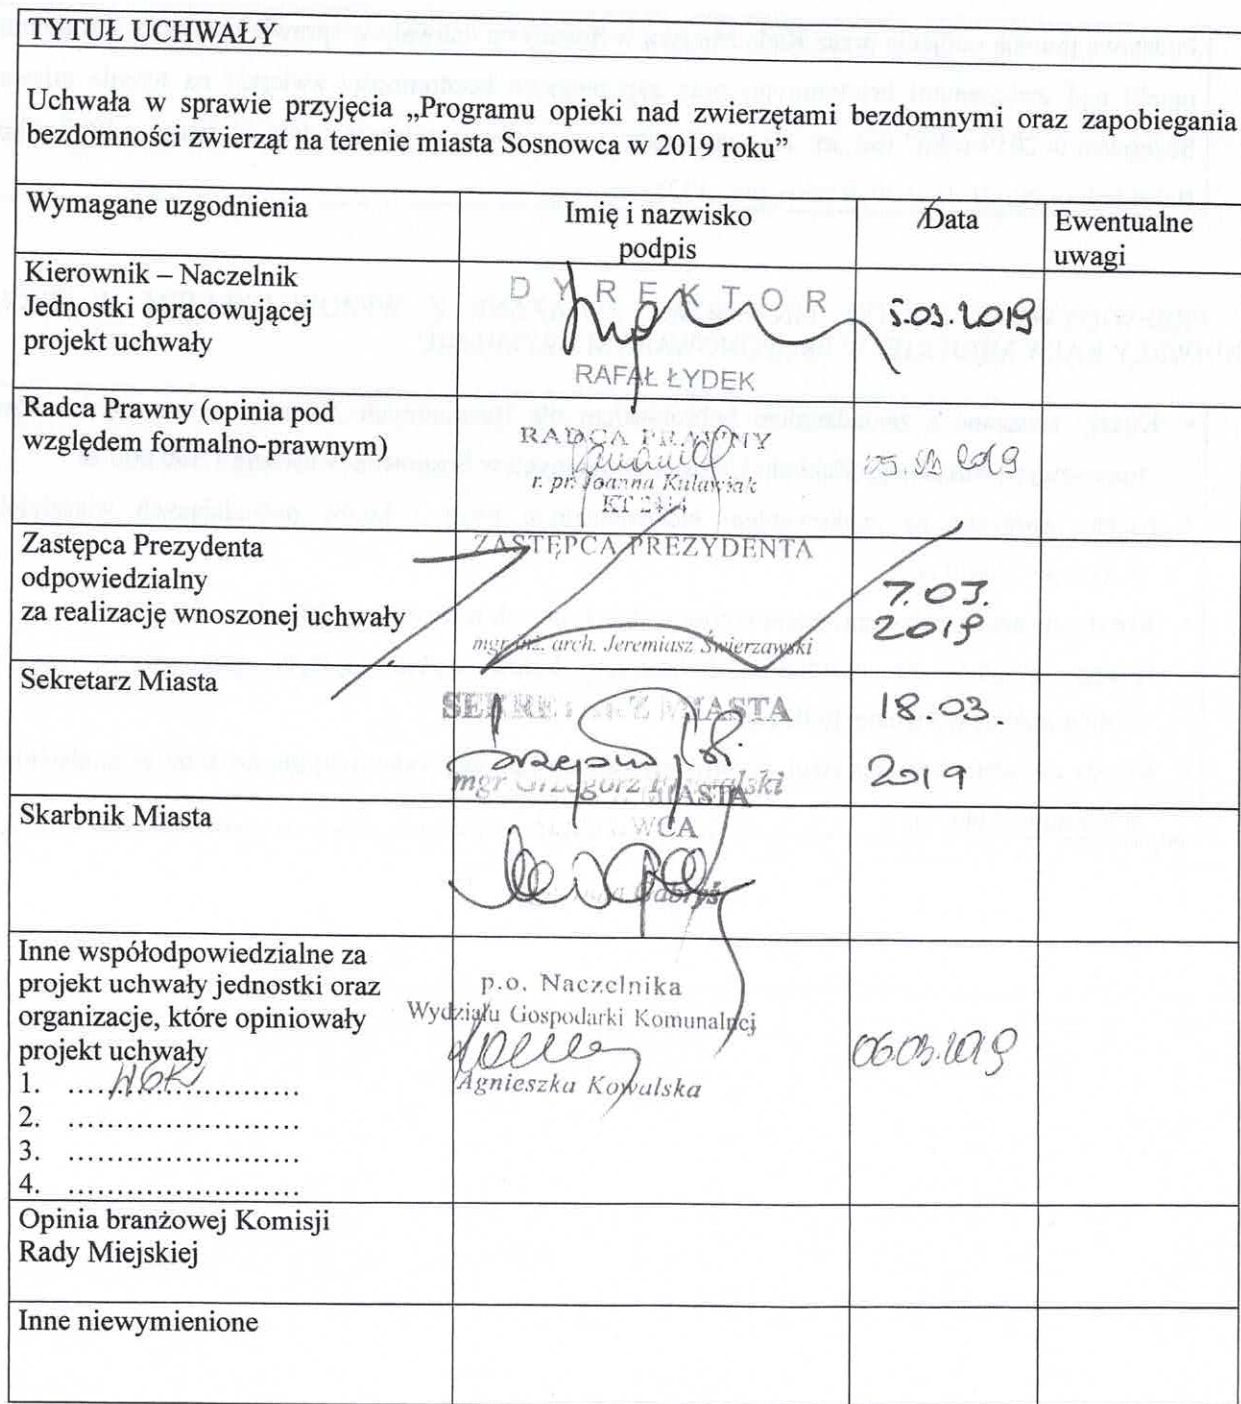 TYTUŁ UCHWAŁY
Uchwała w sprawie przyjęcia „Programu opieki nad zwierzętami bezdomnymi oraz zapobiegania
bezdomności zwierząt na terenie miasta Sosnowca w 2019 roku”
Wymagane uzgodnienia
Imię i nazwisko
podpis
Data
Ewentualne
uwagi
Kierownik – Naczelnik
Jednostki opracowującej
projekt uchwały
DYREKTOR
RAFAŁ ŁYDEK
5.03.2019
Radca Prawny (opinia pod
względem formalno-prawnym)
RADCA PRAWNY
r. pr. Joanna Kulawiak
2019
Zastępca Prezydenta
odpowiedzialny
za realizację wnoszonej uchwały
ZASTĘPCA PREZYDENTA
mgr inż. arch. Jeremiasz Świerzawski
7.03.
2019
Sekretarz Miasta
SEKRETARZ MIASTA
mgr Grzegorz
18.03.
2019
Skarbnik Miasta
MIASTA
WCA
Gabryś
Inne współodpowiedzialne za
projekt uchwały jednostki oraz
organizacje, które opiniowały
projekt uchwały
1. ....WGK....................
2. ............................
3. ............................
4. ............................
p.o. Naczelnika
Wydziału Gospodarki Komunalnej
Agnieszka Kowalska
06.03.2019
Opinia branżowej Komisji
Rady Miejskiej
Inne niewymienione